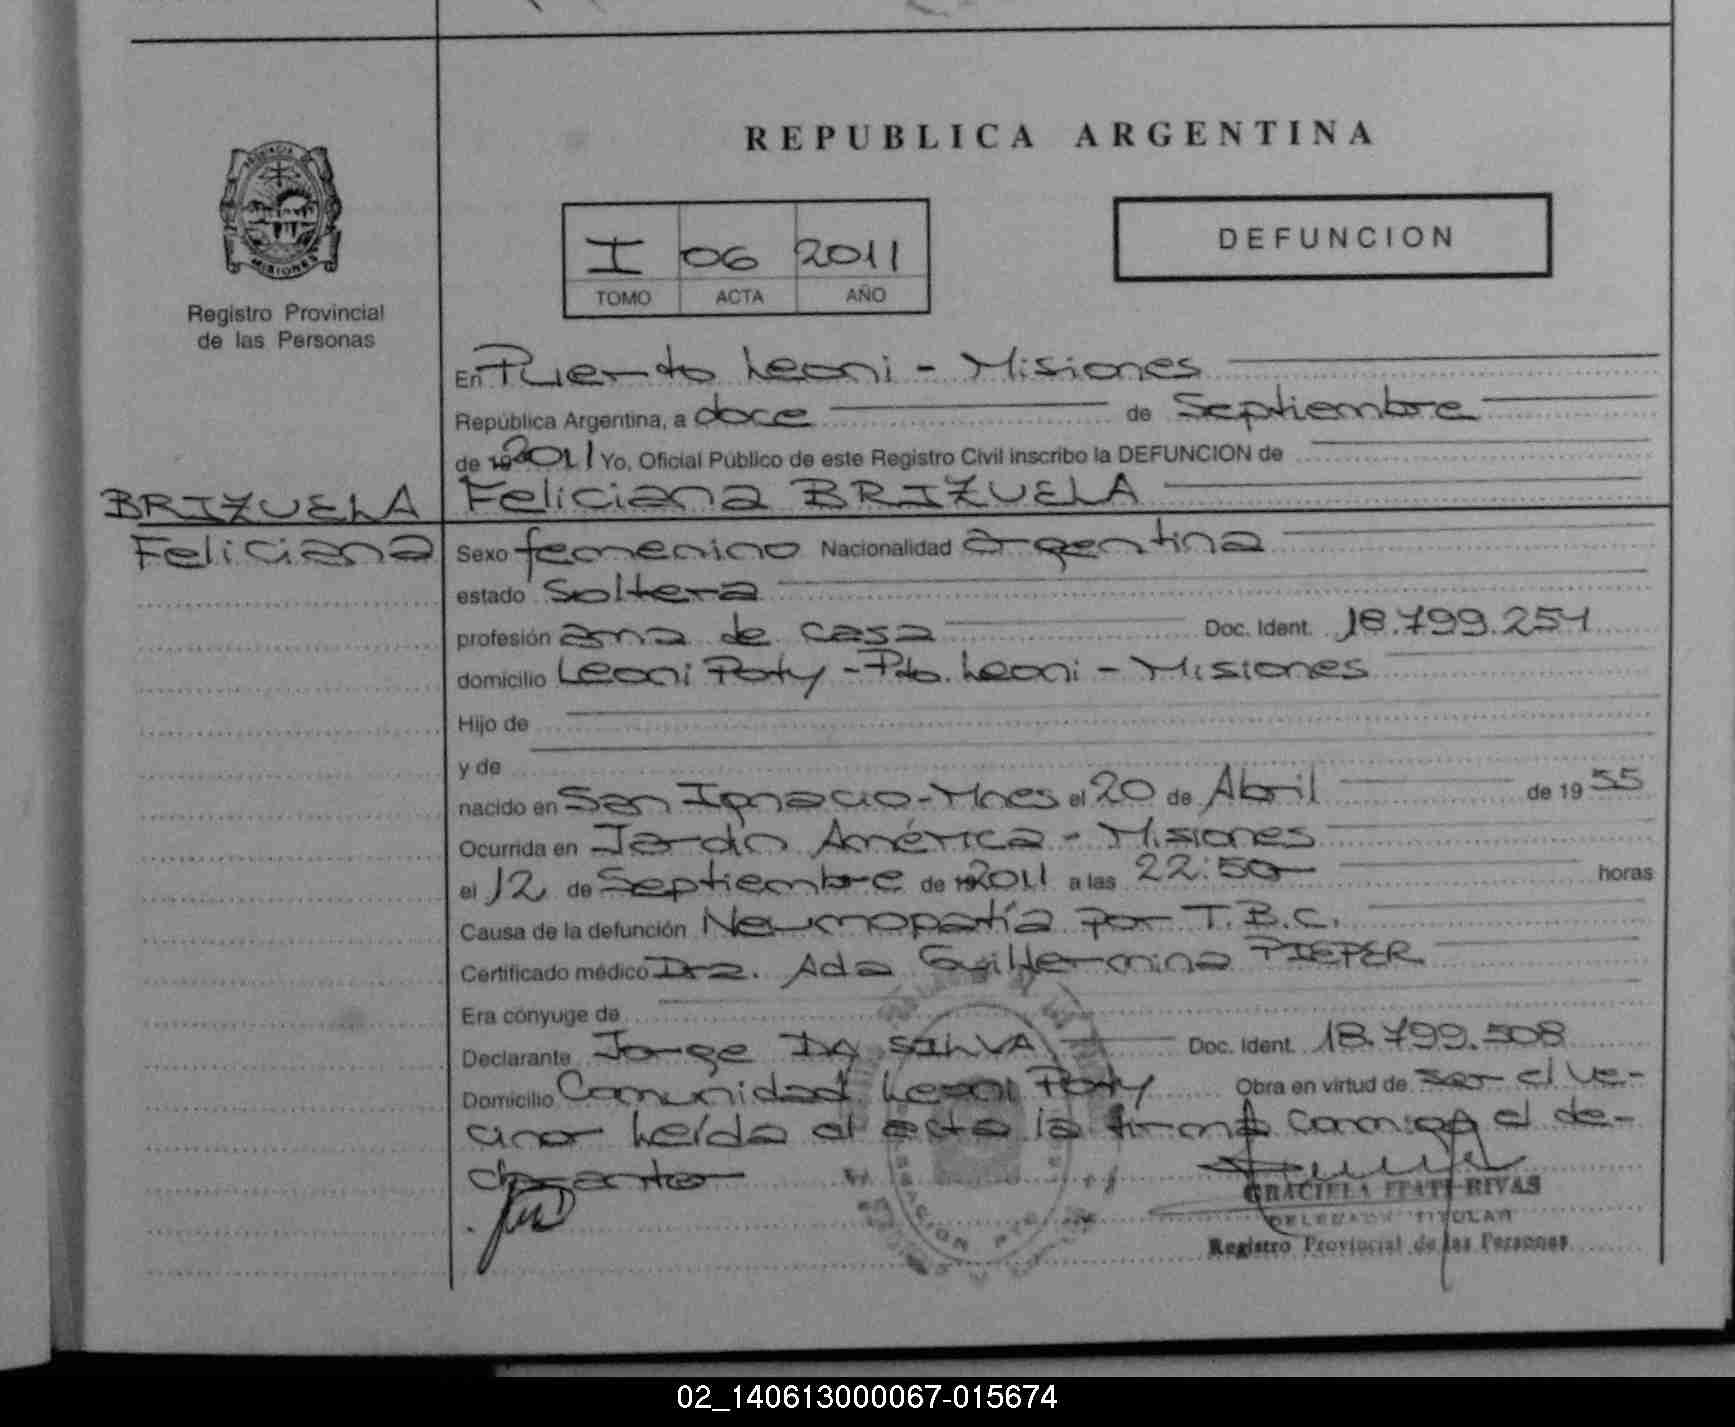 REPUBLICA ARGENTINA
PROVINCIA DE
MISIONES
Registro Provincial
de las Personas
I 06 2011
TOMO ACTA AÑO
DEFUNCION
En Puerto Leoni - Misiones
República Argentina, a doce de Septiembre
de 19 2011 Yo, Oficial Público de este Registro Civil inscribo la DEFUNCION de
BRIZUELA
Feliciana
Feliciana BRIZUELA
Sexo femenino Nacionalidad Argentina
estado soltera
profesión ama de casa Doc. Ident. 18.799.251
domicilio Leoni Poty - Pto. Leoni - Misiones
Hijo de
y de
nacido en San Ignacio - Mnes el 20 de Abril de 19 55
Ocurrida en Jardín América - Misiones
el 12 de Septiembre de 19 2011 a las 22:50 horas
Causa de la defunción Neumopatía por T.B.C.
Certificado médico Dra. Ada Guillermina PIEPER
Era cónyuge de
Declarante Jorge DA SILVA Doc. Ident. 18.799.508
Domicilio Comunidad Leoni Poty Obra en virtud de ser el ve-
cino Leída el acta la firma conmigo el de-
clarante
GRACIELA ITATI RIVAS
DELEGADA TITULAR
Registro Provincial de las Personas
02_140613000067-015674